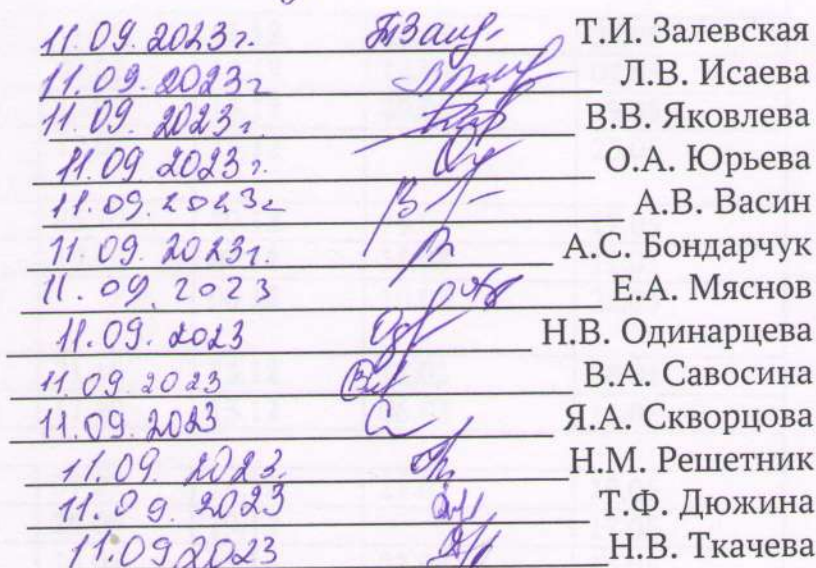 11.09.2023г. Т.И. Залевская
11.09.2023г Л.В. Исаева
11.09.2023г В.В. Яковлева
11.09 2023г. О.А. Юрьева
11.09.2023г А.В. Васин
11.09.2023г. А.С. Бондарчук
11.09.2023 Е.А. Мяснов
11.09.2023 Н.В. Одинарцева
11.09.2023 В.А. Савосина
11.09.2023 Я.А. Скворцова
11.09.2023. Н.М. Решетник
11.09.2023 Т.Ф. Дюжина
11.09.2023 Н.В. Ткачева